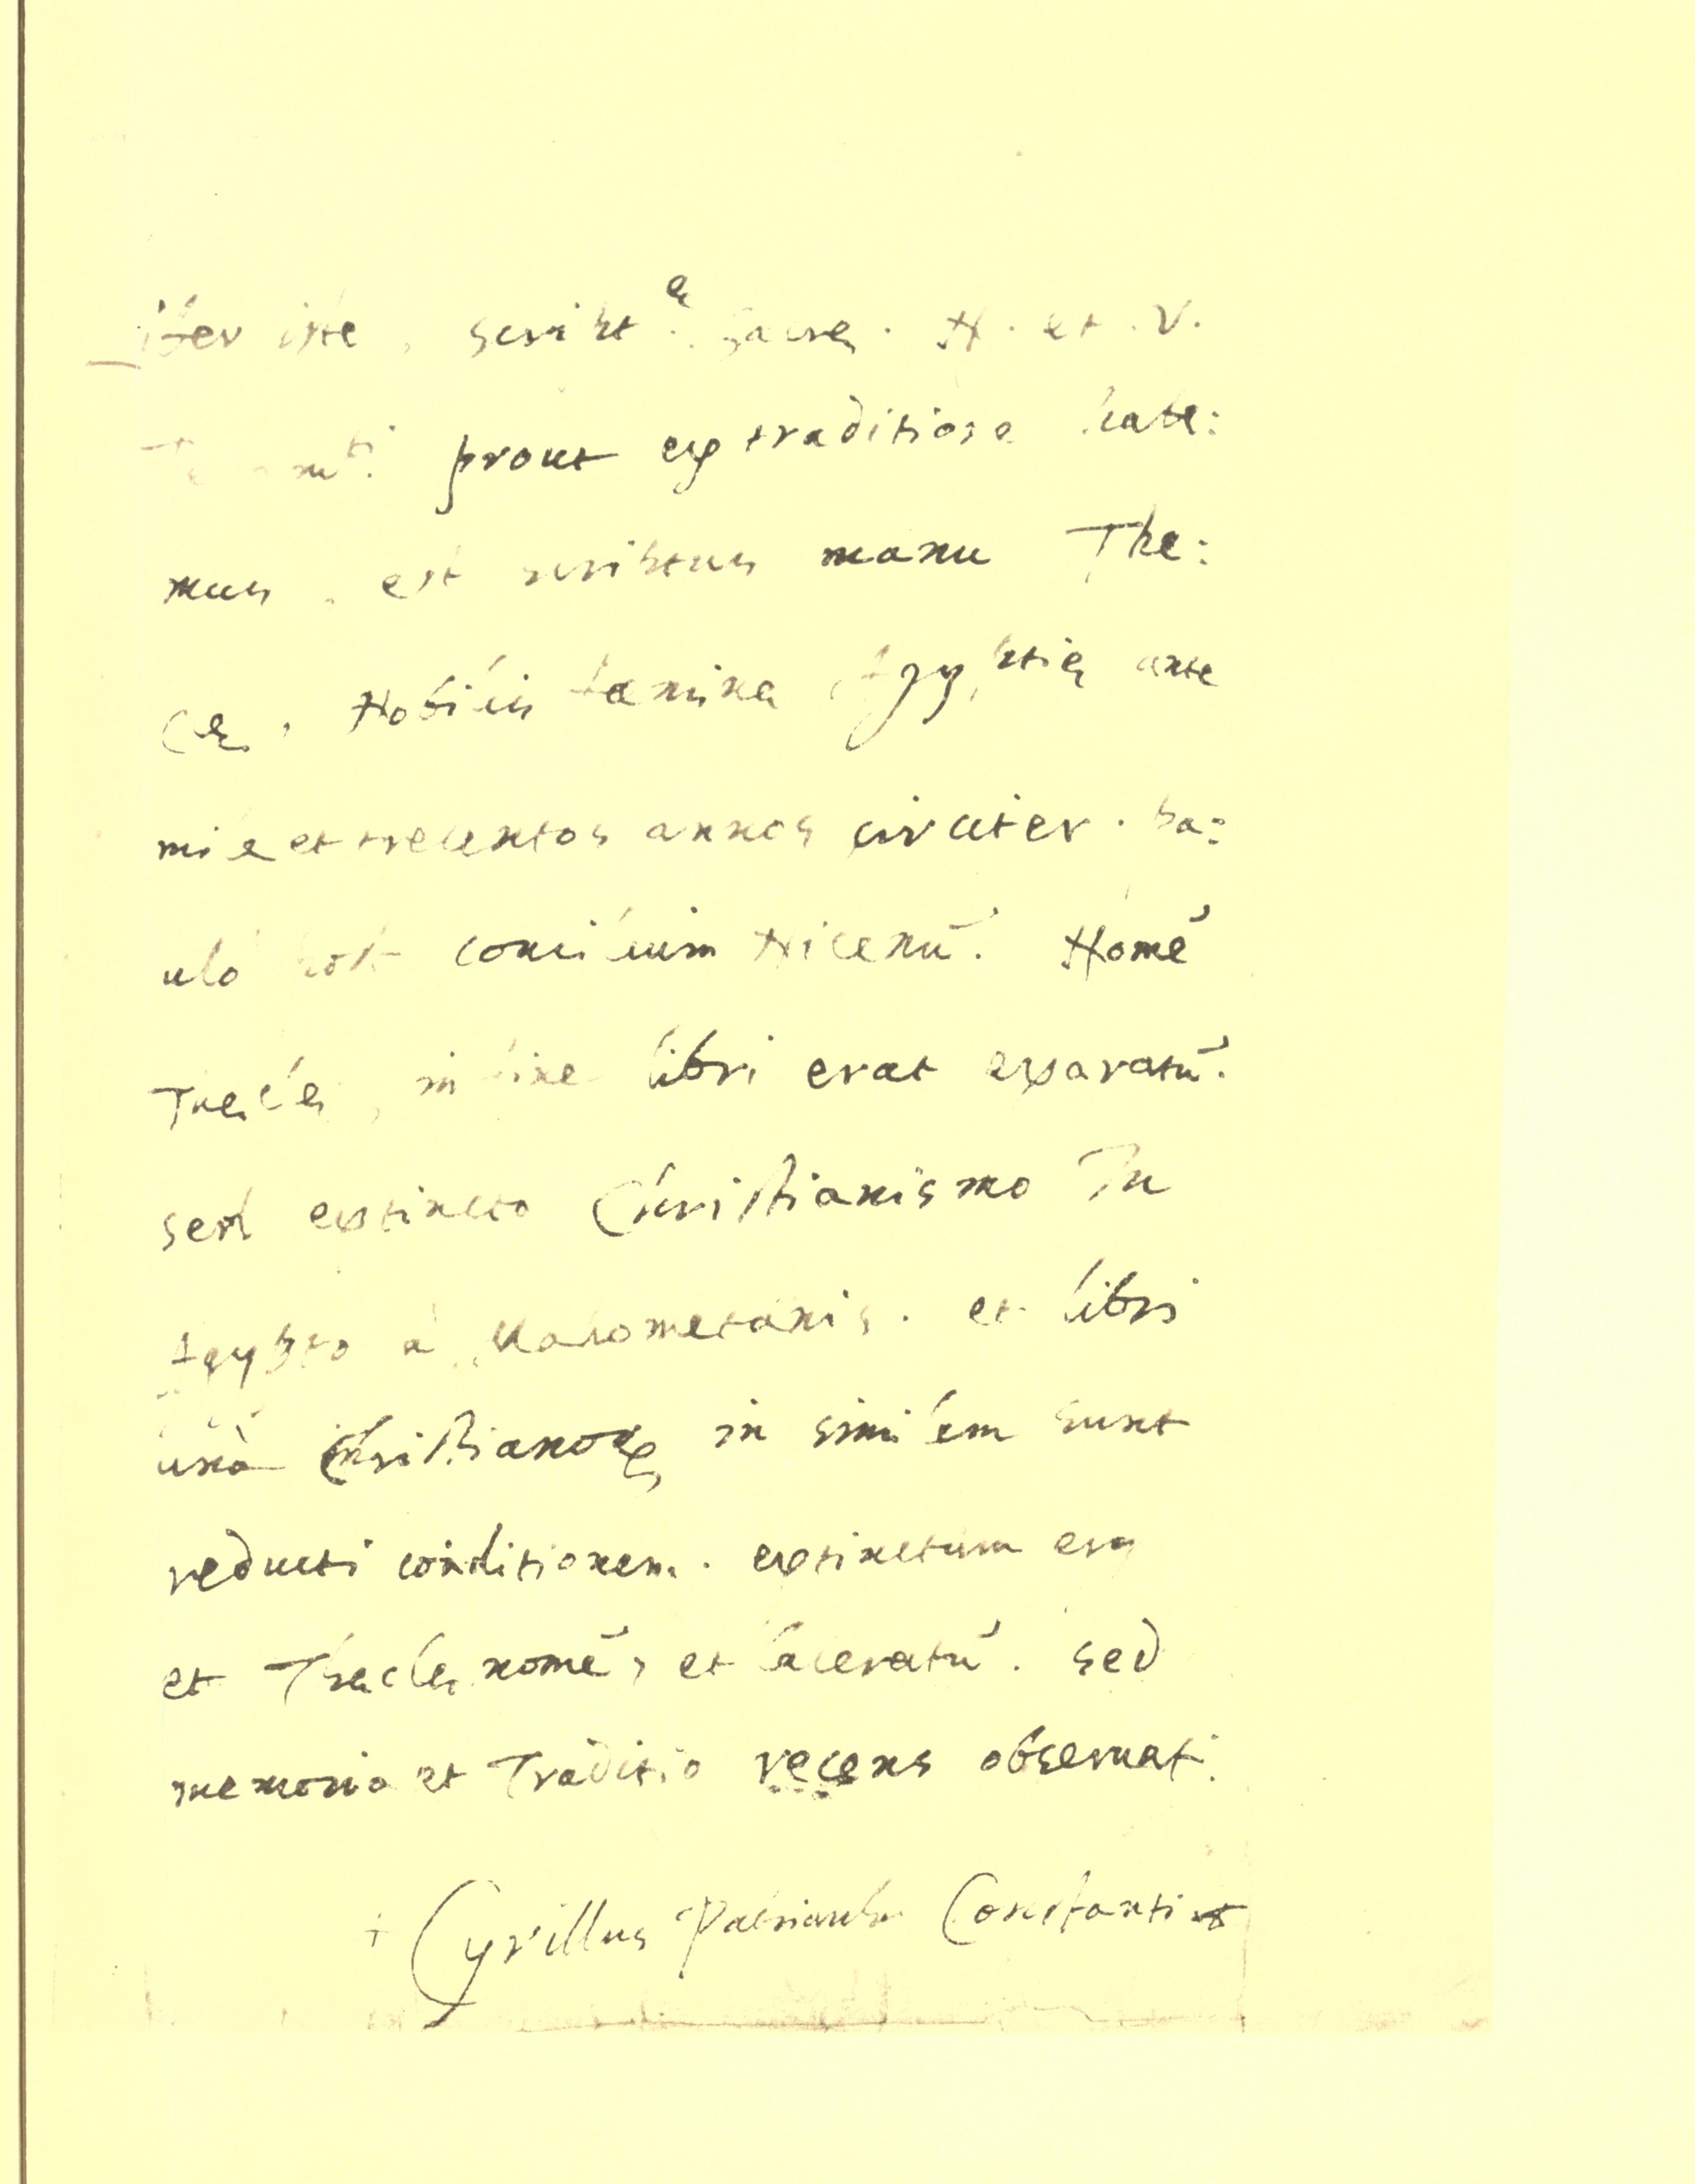 Liber iste, script.ę sacrę. N. et. V.
Testam.ti prout ex traditione habe:
mus, est scriptus manu The:
clę, Nobilis fæminę Ægyptię ante
mille et trecentos annos circiter. Pa:
ulò post concilium Nicenū. Nomē
Theclę, in fine libri erat exaratū.
sed extincto Christianismo In
Ægypto à Mahometanis. et libri
unà Christianoꝝ in similem sunt
reducti conditionem. extinctum erg
et Theclę nomē, et laceratū. sed
memoria et Traditio recens observat.
+ Cyrillus Patriarcha Constanti